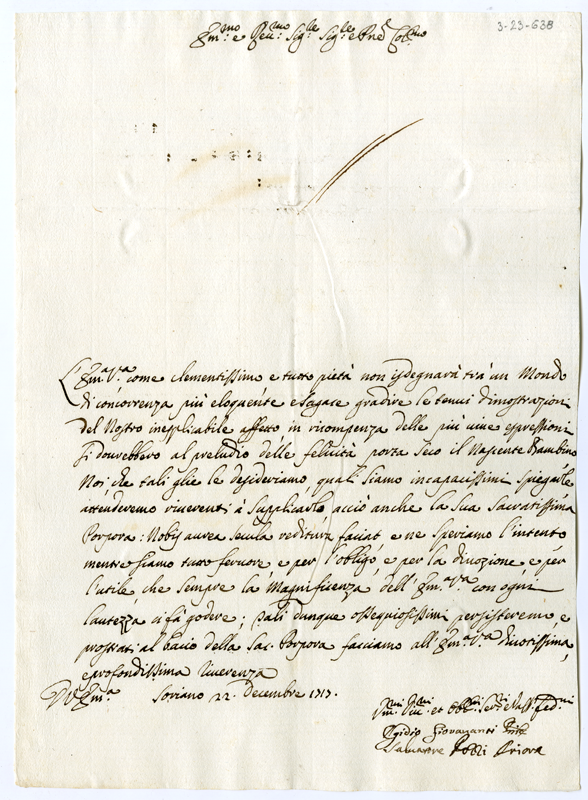 Em.mo e Rev.mo Sig.re Sig.re e Pne Col.mo
3-23-638
L'Em.a V.a come clementissimo e tutto pietà non isdegnarà trà un Mondo
di concorrenza più eloquente e sagace gradire le tenui dimostrazioni
del Nostro inesplicabile affetto in ricompenza delle più vive espressioni
si dovrebbero al preludio delle felicità porta seco il Nascente Bambino
Noi, che tali glie le desideriamo, quali siamo incapacissimi spiegarle
attenderemo riverenti à supplicarlo, acciò anche la Sua Sacratissima
Porpora: Nobis aurea secula reditura faciat e ne speriamo l'intento
mentre siamo tutto fervore e per l'obligo, e per la divozione e per
l'utile, che sempre la Magnificenza dell'Em.a V.a con ogni
lautezza ci fà godere; Tali dunque ossequiosissimi persisteremo, e
prostrati al bacio della Sac. Porpora facciamo all'Em.a V.a divotissima,
e profondissima riverenza
D V Em.a Soriano 22. Decembre 1717.
et Obb.mi Ser.ri
Egidio Giovananti
Salvatore Priora